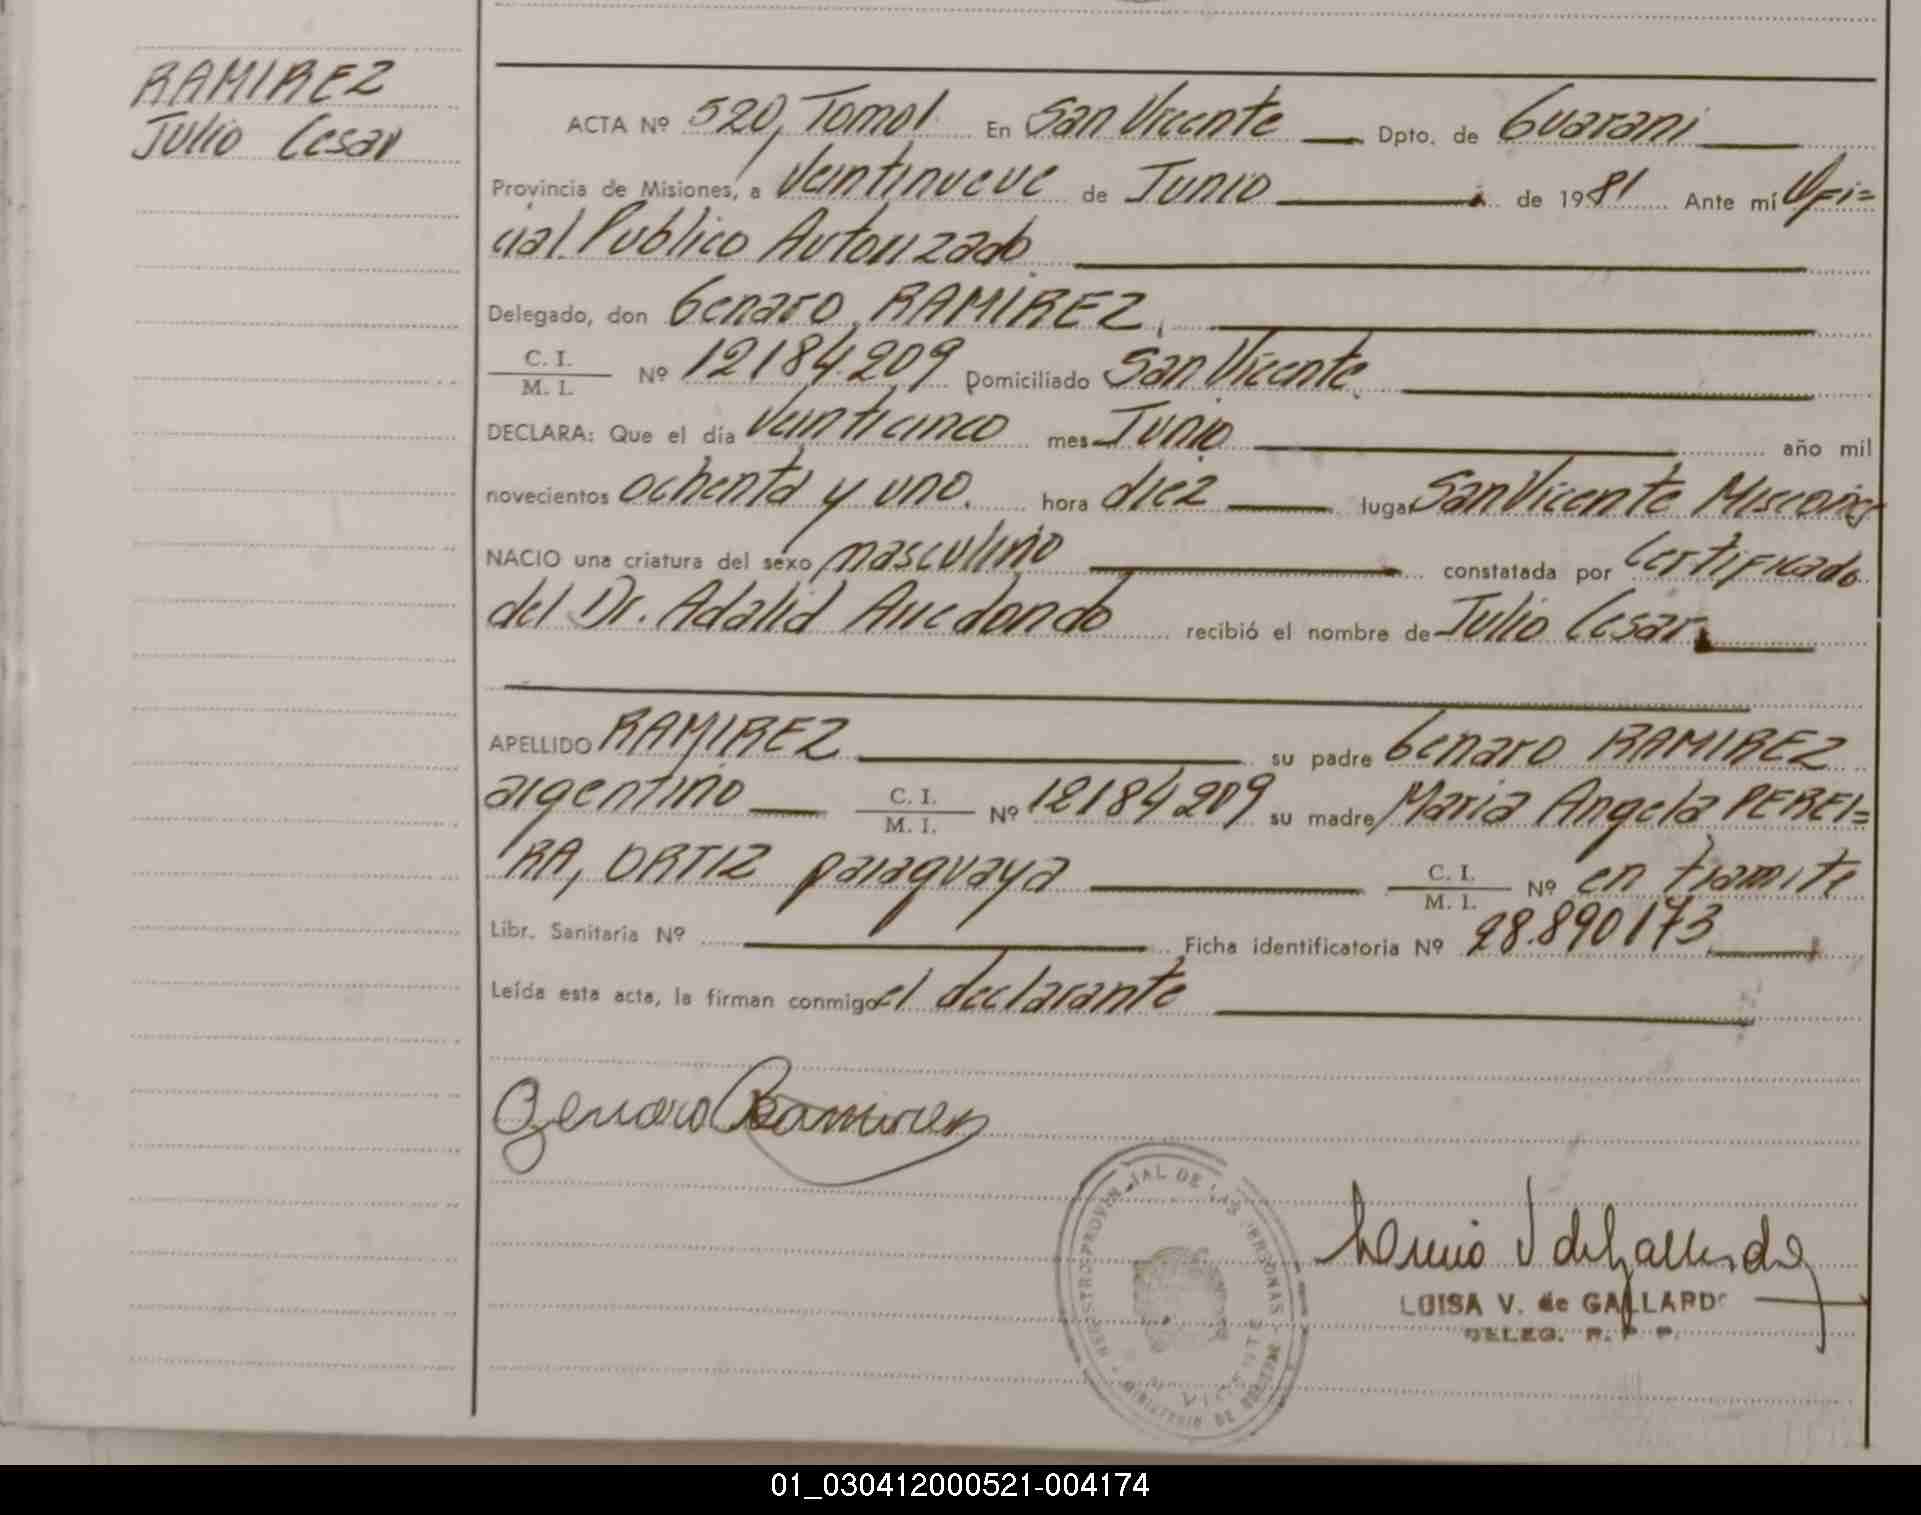 RAMIREZ
Julio Cesar
ACTA Nº 520, Tomo I En San Vicente Dpto. de Guarani
Provincia de Misiones, a veintinueve de Junio de 1981 Ante mí Ofi=
cial Publico Autorizado
Delegado, don Genaro RAMIREZ,
C. I.
M. I. Nº 12184209 Domiciliado San Vicente
DECLARA: Que el día veinticinco mes Junio año mil
novecientos ochenta y uno. hora diez lugar San Vicente Misiones
NACIO una criatura del sexo masculino constatada por Certificado
del Dr. Adalid Arredondo recibió el nombre de Julio Cesar
APELLIDO RAMIREZ su padre Genaro RAMIREZ
argentino C. I.
M. I. Nº 12184209 su madre Maria Angela PEREI=
RA, ORTIZ paraguaya C. I.
M. I. Nº en tramite
Libr. Sanitaria Nº Ficha identificatoria Nº 28.890173
Leída esta acta, la firman conmigo el declarante
Genaro Ramirez
LUISA V. de GALLARDO
DELEG. R. P. P.
REGISTRO PROVINCIAL DE LAS PERSONAS
MINISTERIO DE GOBIERNO
S. VICENTE
01_030412000521-004174